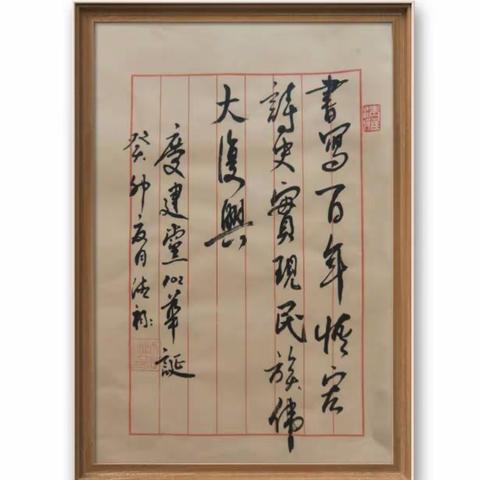 書寫百年恢宏
詩史實現民族偉
大復興
慶建黨102華誕
癸卯夏月